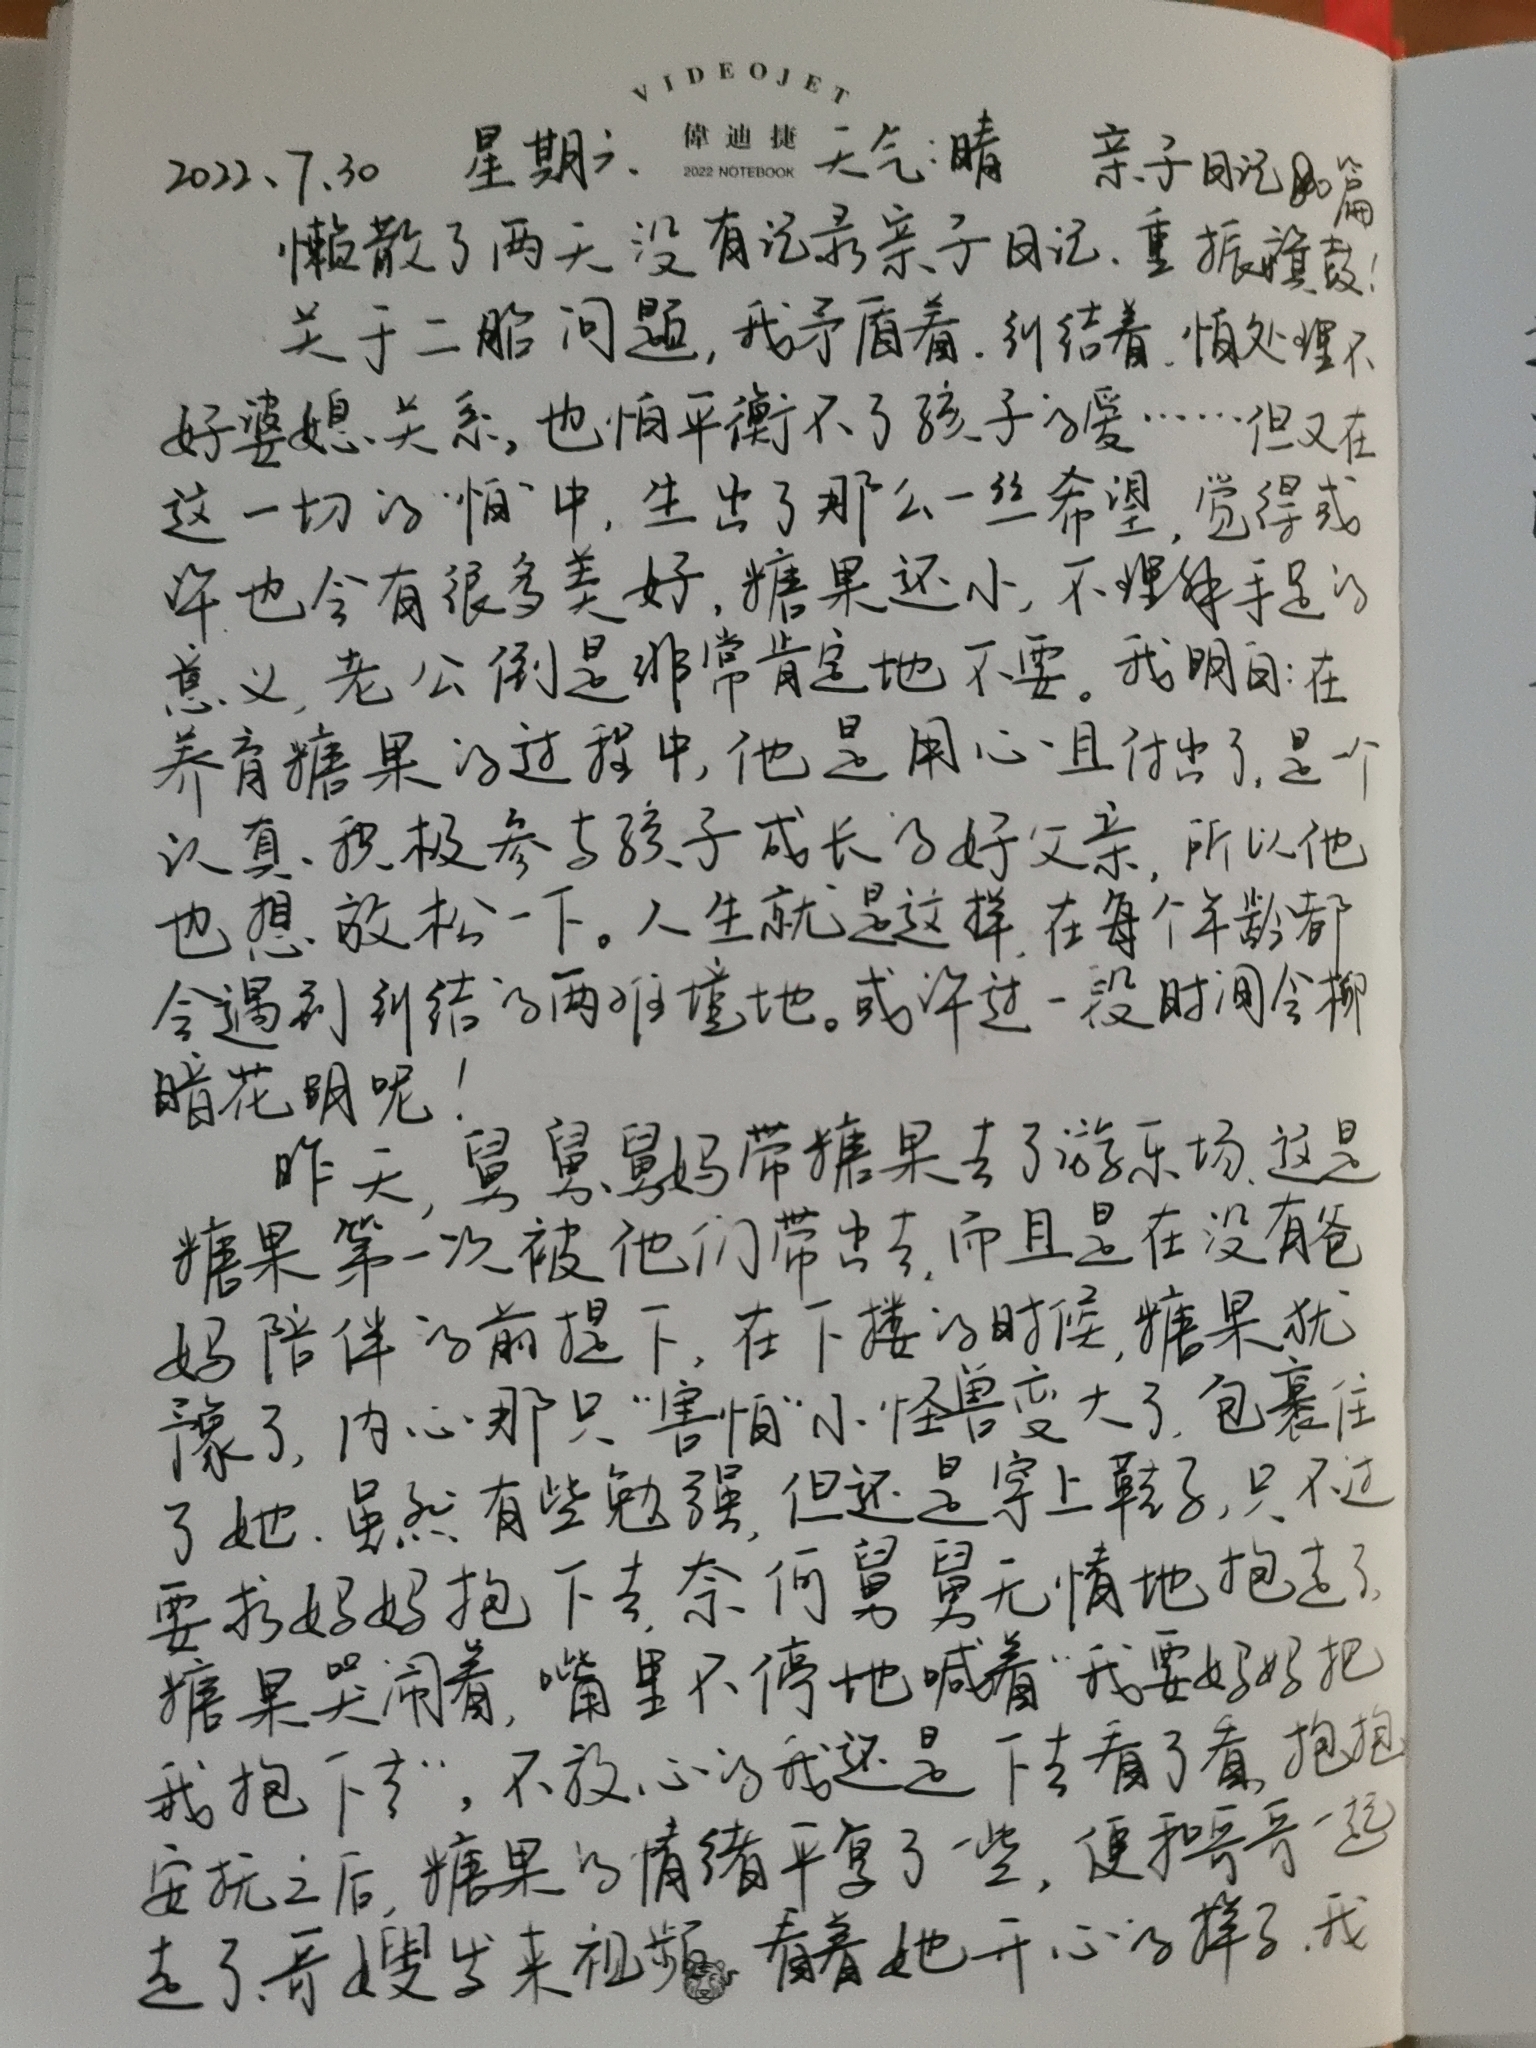 VIDEOJET
偉迪捷
2022 NOTEBOOK
2022、7、30 星期六、 天气:晴 亲子日记 篇
懒散了两天没有记录亲子日记、重振旗鼓!
关于二胎问题,我矛盾着、纠结着,怕处理不
好婆媳关系,也怕平衡不了孩子的爱……但又在
这一切的“怕”中,生出了那么一丝希望,觉得或
许也会有很多美好,糖果还小,不理解手足的
意义,老公倒是非常肯定地不要。我明白:在
养育糖果的过程中,他是用心且付出了,是一个
认真、积极参与孩子成长的好父亲,所以他
也想放松一下。人生就是这样,在每个年龄都
会遇到纠结的两难境地。或许过一段时间会柳
暗花明呢!
昨天,舅舅、舅妈带糖果去了游乐场,这是
糖果第一次被他们带出去,而且是在没有爸
妈陪伴的前提下,在下楼的时候,糖果犹
豫了,内心那只“害怕”小怪兽变大了,包裹住
了她、虽然有些勉强,但还是穿上鞋子,只不过
要求妈妈抱下去,奈何舅舅无情地抱走了,
糖果哭闹着,嘴里不停地喊着“我要妈妈把
我抱下去”,不放心的我还是下去看了看,抱抱
安抚之后,糖果的情绪平复了一些,便和哥哥一起
走了、哥嫂发来视频,看着她开心的样子,我